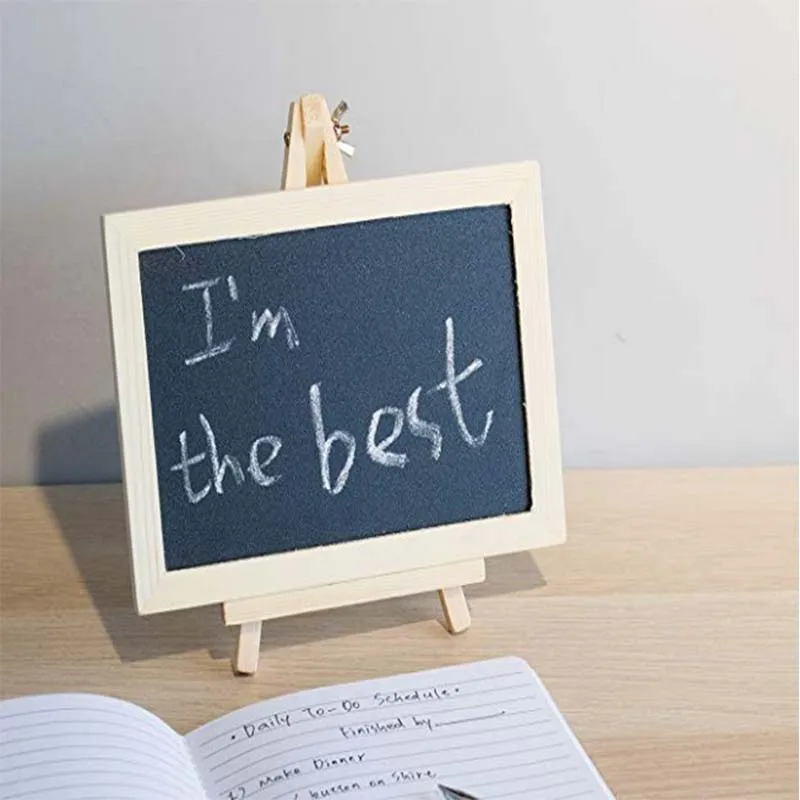 I'm
the best
• Daily To-Do Schedule •
Finished by
1) Make Dinner
button on Shire